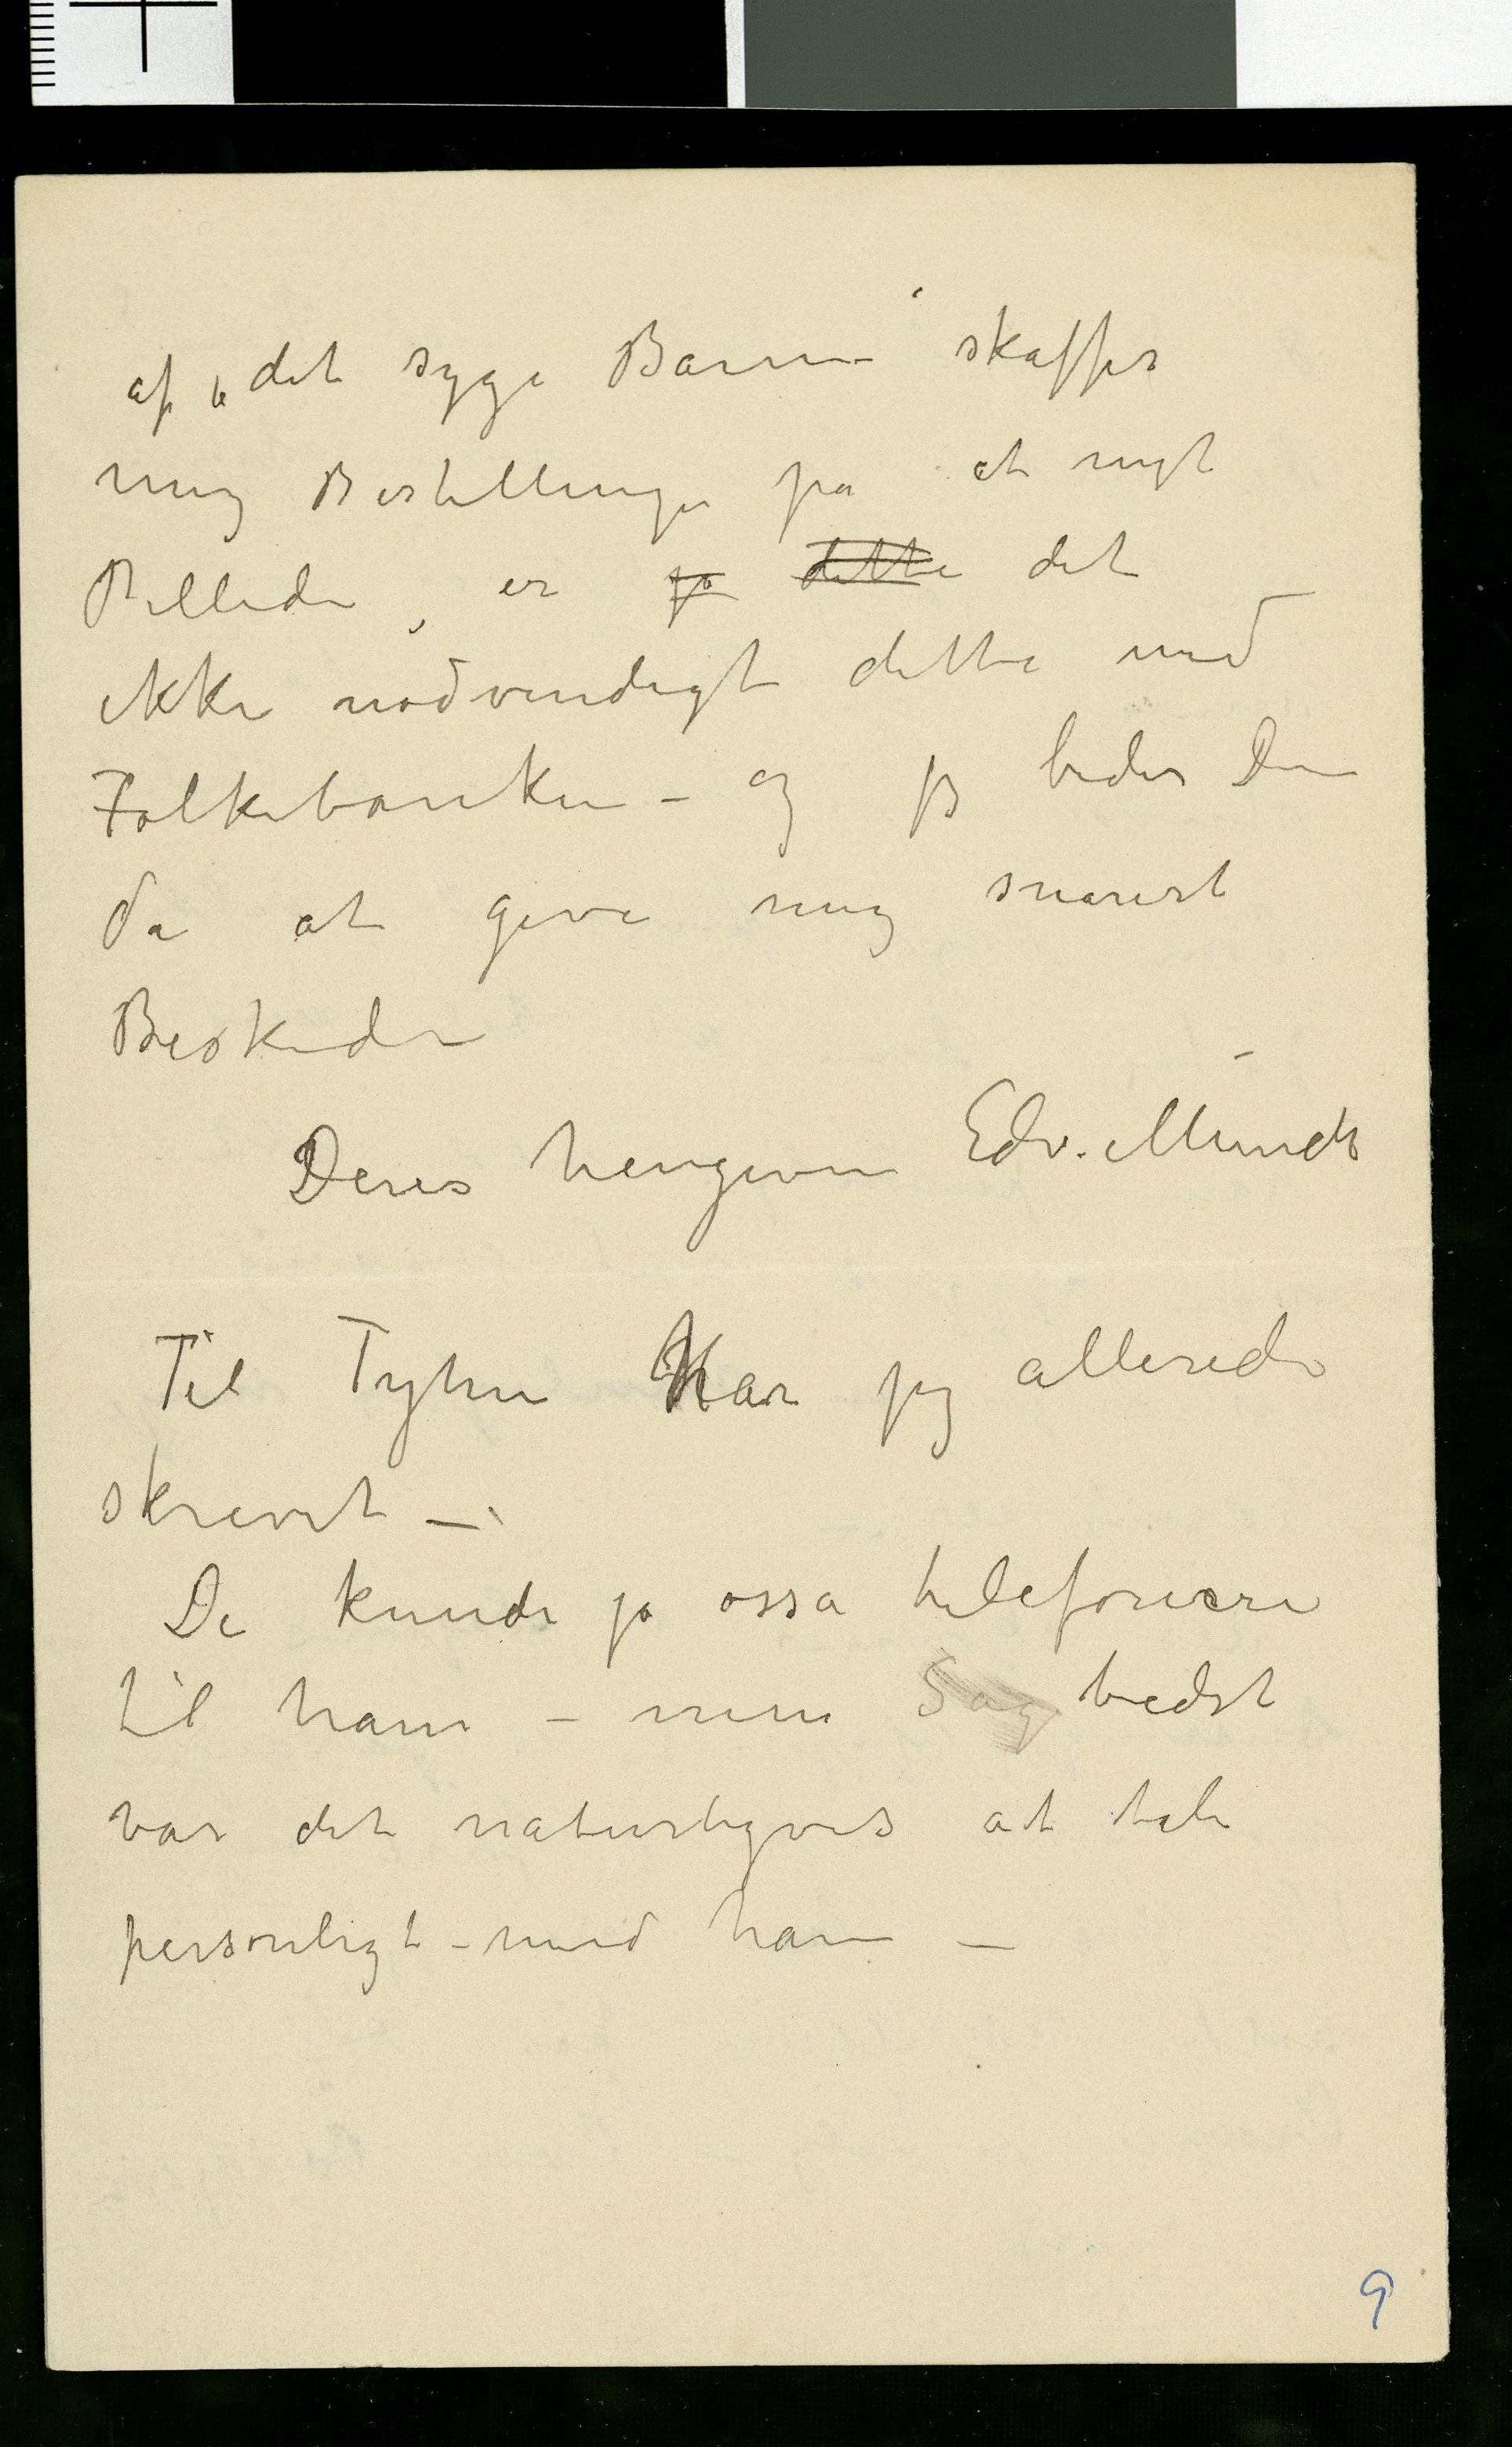 af „det syge Barn“ skaffes
mig Bestillinge på et nyt
Billede, er ja dette det
ikke nødvendigt dette med
Folkebanken – og jeg beder Dem
da at give mig snarest
Beskeden
Deres hengivne Edv. Munch
Til Tyhn Har jeg allerede
skrevet –
De kunde jo osså telefonere
til ham – men Sag bedst
var det naturligvis at tale
personligt – med ham –
9